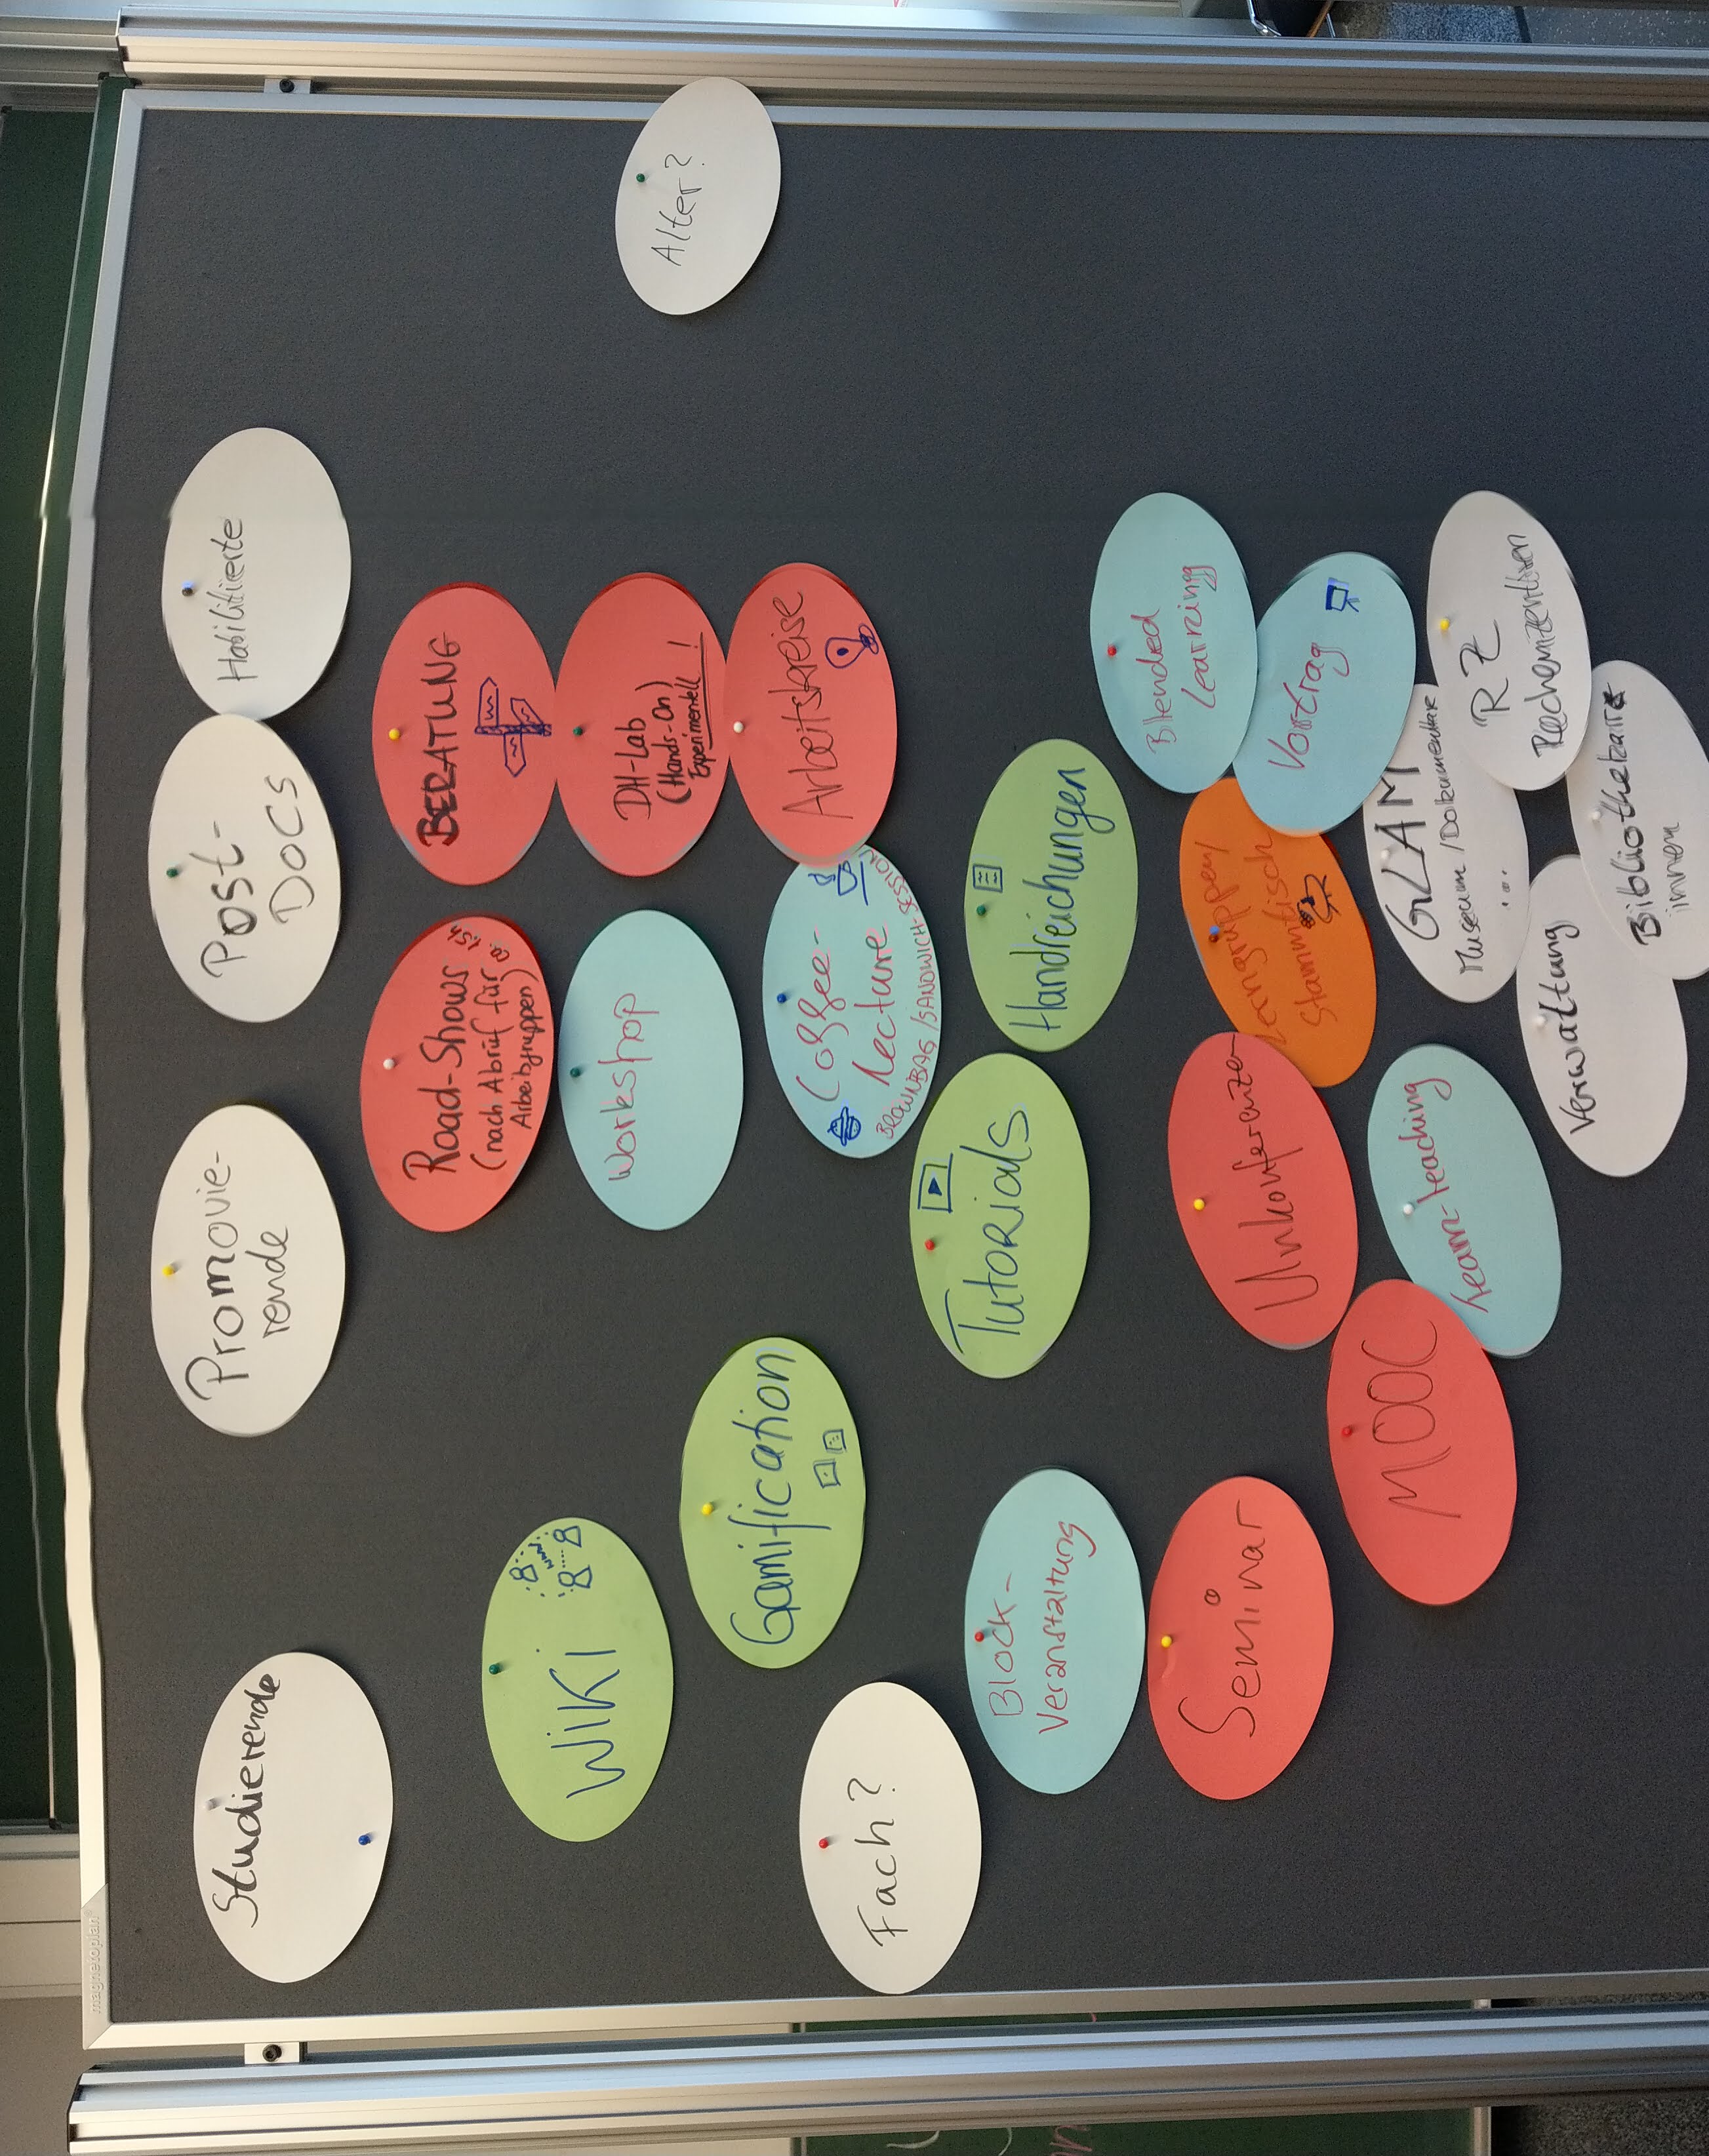 magnetoplan
Studierende
Promovie-
rende
Post-
DoCs
Habilitierte
Road-Shows
(nach Abruf für
Arbeitsgruppen)
ca. 1.5h
BERATUNG
WiKi
www
Workshop
DH-Lab
(Hands-On)
Experimentell !
Alter?
Gamification
Coffee-
lecture
BROWNBAG / SANDWICH-SESSION
Arbeitskreise
Fach?
Tutorials
Handreichungen
Block-
Veranstaltung
Blended
Learning
Seminar
Unkonferenzen
Lerngruppen/
Stammtisch
Vortrag
MOOC
Team-teaching
GLAM
Museum / Dokumentare
...
RZ
Rechenzentren
Verwaltung
Bibliothekare
innen